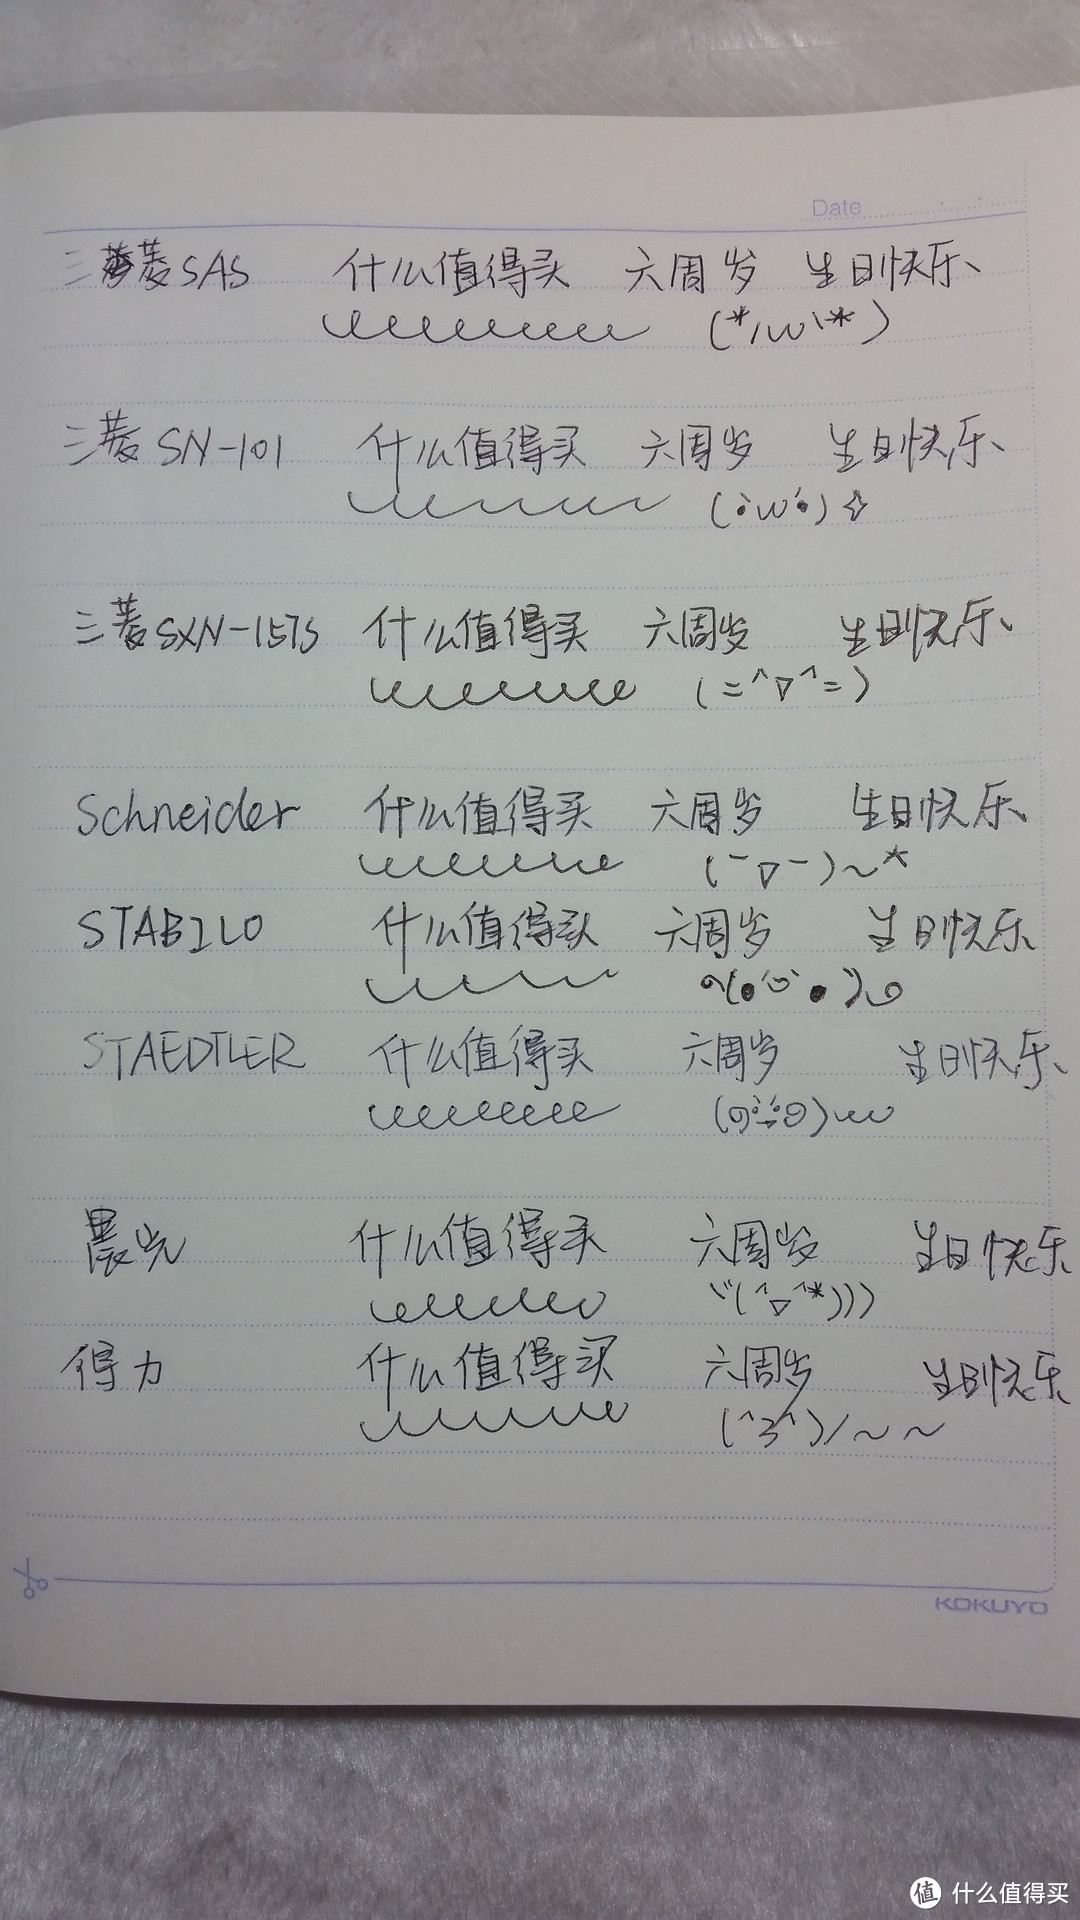 Date
三菱SAS 什么值得买 六周岁 生日快乐
(*/ω\*)
三菱SN-101 什么值得买 六周岁 生日快乐
(•̀ω•́)☆
三菱SXN-157S 什么值得买 六周岁 生日快乐
(=^▽^=)
Schneider 什么值得买 六周岁 生日快乐
(¯▽¯)~*
STABILO 什么值得买 六周岁 生日快乐
STAEDTLER 什么值得买 六周岁 生日快乐
晨光 什么值得买 六周岁 生日快乐
ヾ(^▽^*)))
得力 什么值得买 六周岁 生日快乐
(^3^)/~~
KOKUYO
值 什么值得买